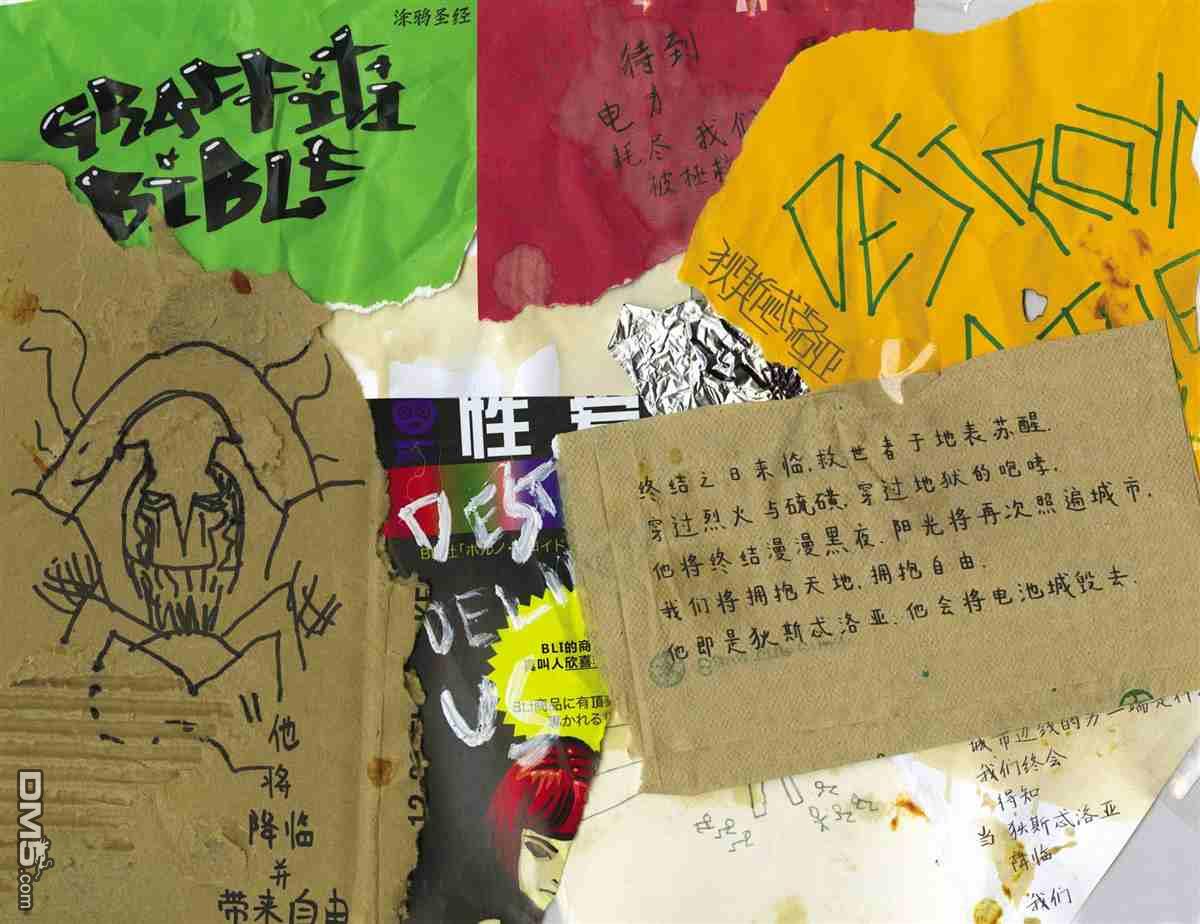 涂鸦圣经
GRAFFITI
BIBLE
待到
电力
耗尽 我们
被拯救
DESTROYA
狄斯忒洛亚
性爱
DEST
DELIV
US
BLI的商
叫人欣喜
BLI商品に有頂
惠かれる
终结之日来临.救世者于地表苏醒.
穿过烈火与硫磺.穿过地狱的咆哮.
他将终结漫漫黑夜.阳光将再次照遍城市.
我们将拥抱天地.拥抱自由.
他即是狄斯忒洛亚.他会将电池城毁去.
"他
将
降临
并
带来自由
城市边线的另一端是什
我们终会
得知
当 狄斯忒洛亚
降临
我们
DM5
.com